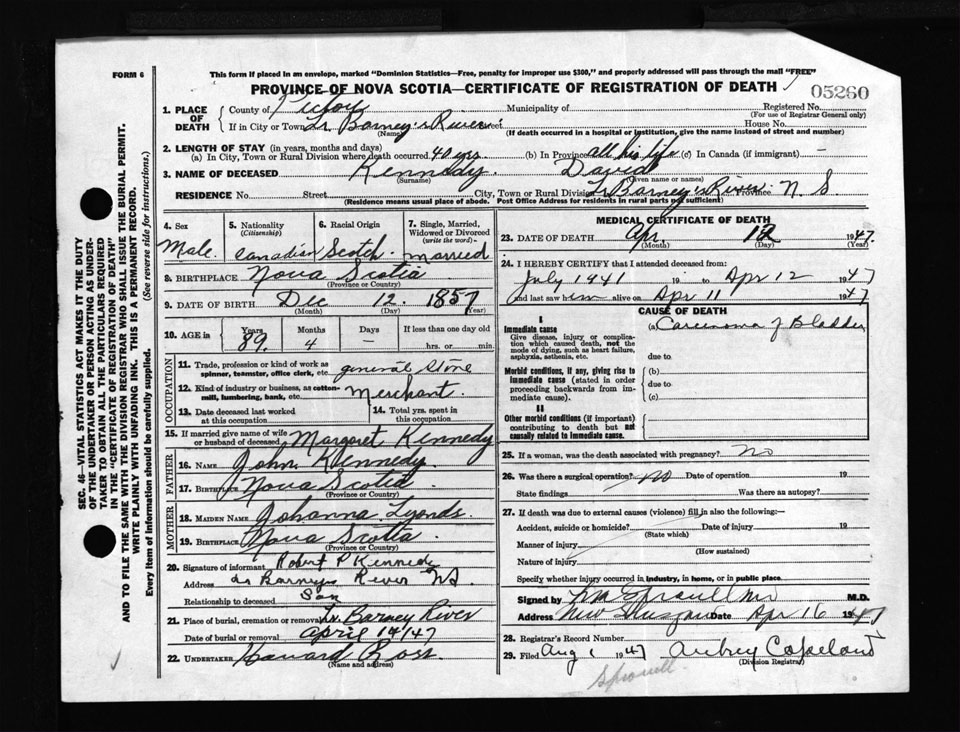 FORM 6
This form if placed in an envelope, marked "Dominion Statistics—Free, penalty for improper use $300," and properly addressed will pass through the mail "FREE"
PROVINCE OF NOVA SCOTIA—CERTIFICATE OF REGISTRATION OF DEATH
05260
1. PLACE OF DEATH
County of Pictou Municipality of Registered No.
(For use of Registrar General only)
If in City or Town Lr Barney's River House No.
(Name) (If death occurred in a hospital or institution, give the name instead of street and number)
2. LENGTH OF STAY (in years, months and days)
(a) In City, Town or Rural Division where death occurred 40 yrs (b) In Province all his life (c) In Canada (if immigrant) —
3. NAME OF DECEASED Kennedy. David
(Surname) (Given name or names)
RESIDENCE No. Street City, Town or Rural Division Lr Barney's River Province N S
(Residence means usual place of abode. Post Office Address for residents in rural parts not sufficient)
4. Sex
Male.
5. Nationality
(Citizenship)
Canadian
6. Racial Origin
Scotch
7. Single, Married, Widowed or Divorced
(write the word)
Married
8. BIRTHPLACE Nova Scotia
(Province or Country)
9. DATE OF BIRTH Dec 12. 1857
(Month) (Day) (Year)
10. AGE in
Years Months Days If less than one day old
89. 4 — hrs. or min.
OCCUPATION
11. Trade, profession or kind of work as spinner, teamster, office clerk, etc. general store
12. Kind of industry or business, as cotton-mill, lumbering, bank, etc. Merchant.
13. Date deceased last worked at this occupation
14. Total yrs. spent in this occupation
15. If married give name of wife or husband of deceased Margaret Kennedy
FATHER
16. NAME John Kennedy.
17. BIRTHPLACE Nova Scotia
(Province or Country)
MOTHER
18. MAIDEN NAME Johanna Lyonds
19. BIRTHPLACE Nova Scotia
(Province or Country)
20. Signature of informant Robert P Kennedy
Address Lr Barneys River NS
Relationship to deceased Son
21. Place of burial, cremation or removal Lr. Barney River
Date of burial or removal April 14/47
22. UNDERTAKER Howard Ross
(Name and address)
MEDICAL CERTIFICATE OF DEATH
23. DATE OF DEATH Apr. 12 1947.
(Month) (Day) (Year)
24. I HEREBY CERTIFY that I attended deceased from:
July 1941 19 to Apr 12 1947
and last saw him alive on Apr 11 1947
CAUSE OF DEATH
I
Immediate cause
Give disease, injury or complication which caused death, not the mode of dying, such as heart failure, asphyxia, asthenia, etc.
(a) Carcinoma of Bladder
due to
Morbid conditions, if any, giving rise to immediate cause (stated in order proceeding backwards from immediate cause).
(b)
due to
(c)
II
Other morbid conditions (if important) contributing to death but not causally related to immediate cause.
25. If a woman, was the death associated with pregnancy? No
26. Was there a surgical operation? No Date of operation 19
State findings Was there an autopsy?
27. If death was due to external causes (violence) fill in also the following:—
Accident, suicide or homicide? Date of injury 19
(State which)
Manner of injury
(How sustained)
Nature of injury
Specify whether injury occurred in industry, in home, or in public place.
Signed by Sproull MD M.D.
Address New Glasgow Date Apr 16 1947
28. Registrar's Record Number
29. Filed Aug 1 1947 Aubrey Copeland
(Division Registrar)
Sproull
SEC. 46—VITAL STATISTICS ACT MAKES IT THE DUTY
OF THE UNDERTAKER OR PERSON ACTING AS UNDER-
TAKER TO OBTAIN ALL THE PARTICULARS REQUIRED
IN THE "CERTIFICATE OF REGISTRATION OF DEATH"
AND TO FILE THE SAME WITH THE DIVISION REGISTRAR WHO SHALL ISSUE THE BURIAL PERMIT.
WRITE PLAINLY WITH UNFADING INK. THIS IS A PERMANENT RECORD.
Every item of Information should be carefully supplied. (See reverse side for instructions.)